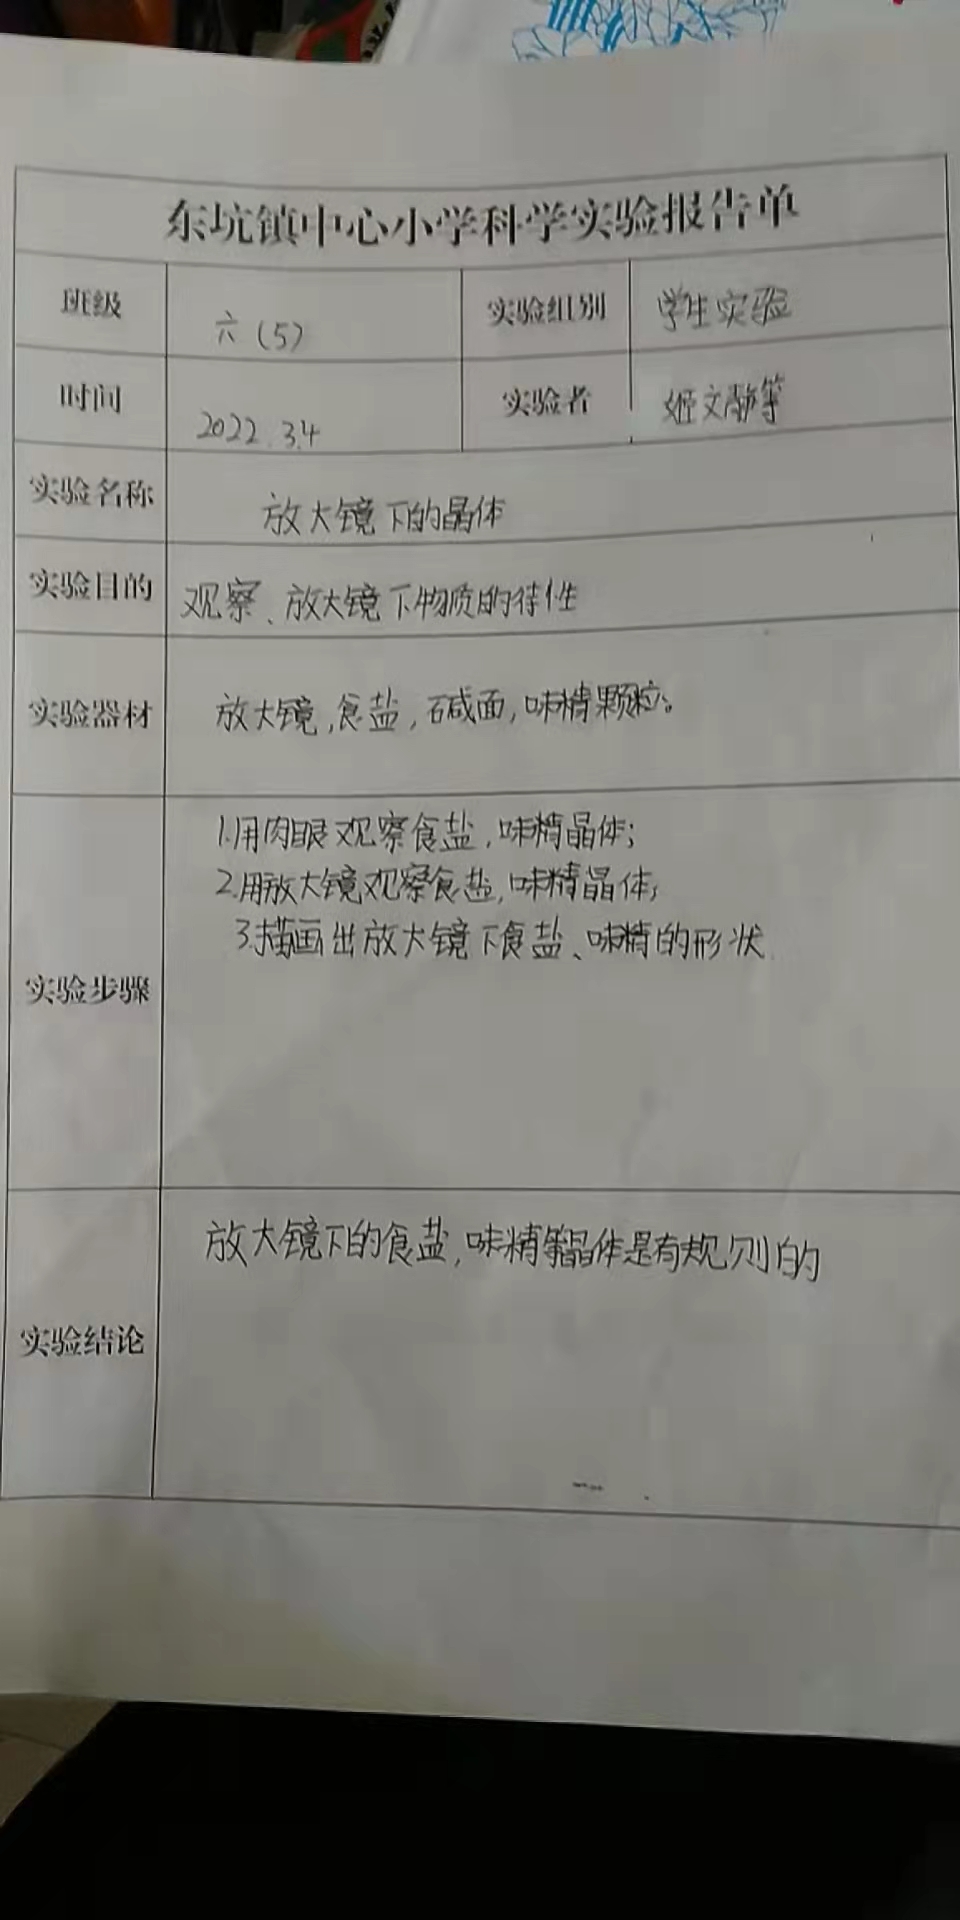 东坑镇中心小学科学实验报告单
班级 六(5) 实验组别 学生实验
时间 2022.3.4 实验者 姬文静等
实验名称 放大镜下的晶体
实验目的 观察、放大镜下物质的特性
实验器材 放大镜,食盐,碱面,味精颗粒。
实验步骤
1.用肉眼观察食盐,味精晶体;
2.用放大镜观察食盐,味精晶体;
3.描画出放大镜下食盐、味精的形状.
实验结论
放大镜下的食盐,味精等晶体是有规则的